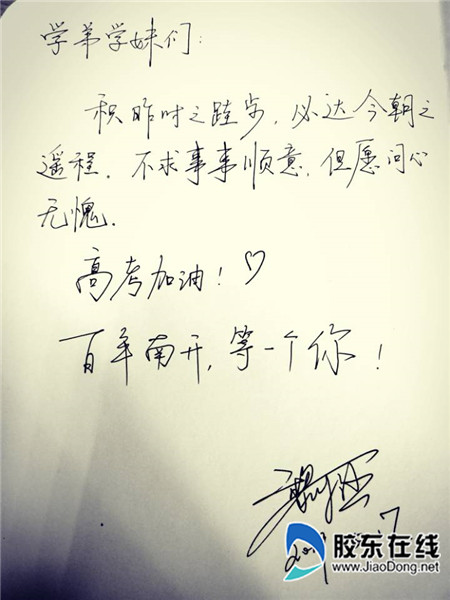 学弟学妹们:
积昨时之跬步,必达今朝之
遥程.不求事事顺意,但愿问心
无愧.
高考加油!♡
百年南开,等一个你!
7
胶东在线
www.JiaoDong.net